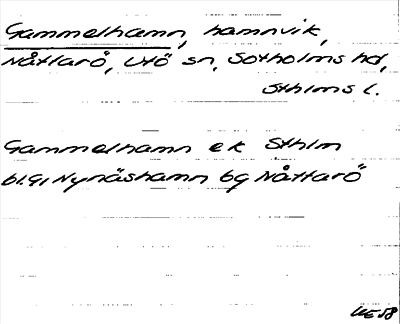 Gammelhamn, hamnvik,
Nåttarö, Utö sn, Sotholms hd,
Sthlms l.
Gammelhamn ek Sthlm
bl.91 Nynäshamn bg Nåttarö